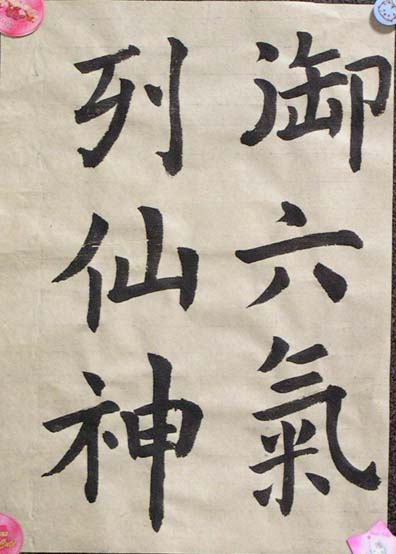 御六氣
列仙神